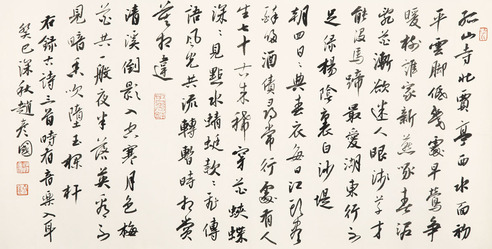 孤山寺北賈亭西水面初
平雲腳低幾處早鶯争
暖树誰家新燕啄春泥
乱花漸欲迷人眼浅草才
能没馬蹄最愛湖東行不
足绿楊陰裏白沙堤
朝回日日典春衣每日江頭盡
醉歸酒債尋常行處有人
生七十古来稀穿花蛱蝶
深深見點水蜻蜓款款飛傳
語風光共流轉暫時相賞
莫相違
清溪倒影入空寒月色梅
花共一般夜半落英看不
見暗香吹墮玉欄杆
右録古诗三首時有音樂入耳
癸巳深秋趙彦國